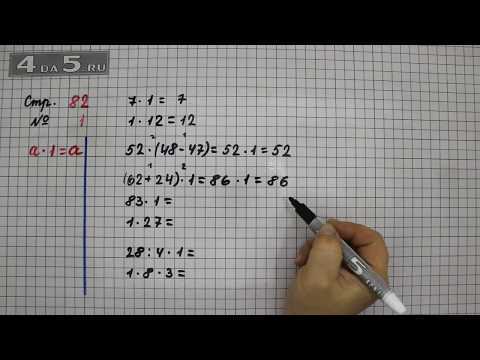 4 DA 5.RU
Стр. 82
№ 1
a · 1 = a
7 · 1 = 7
1 · 12 = 12
2 1
52 · (48 - 47) = 52 · 1 = 52
1 2
(62 + 24) · 1 = 86 · 1 = 86
83 · 1 =
1 · 27 =
28 : 4 · 1 =
1 · 8 · 3 =